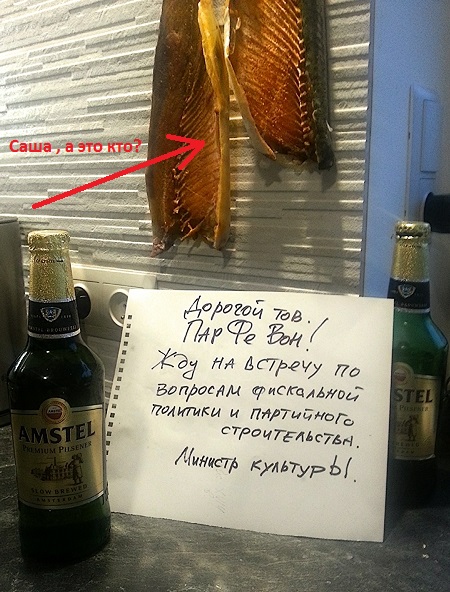 Саша , а это кто?
Дорогой тов.
ПАР Фе Вон!
Жду на встречу по
вопросам фискальной
политики и партийного
строительства.
Министр культуры.
AMSTEL
PREMIUM PILSENER
SLOW BREWED
AMSTERDAM